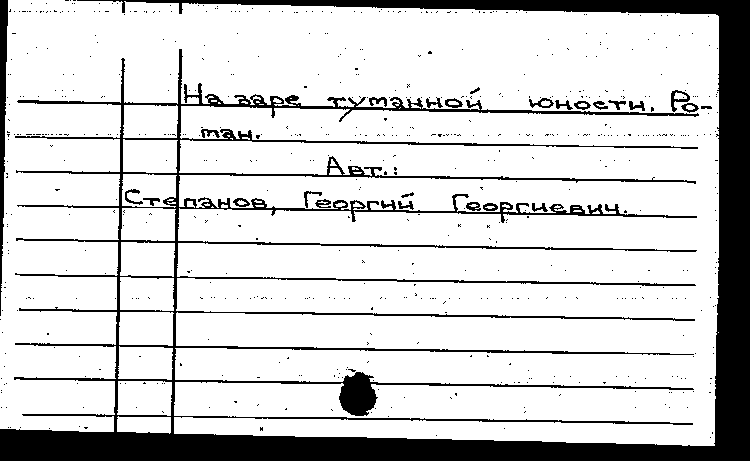 На заре туманной юности. Ро-
ман.
Авт.:
Степанов, Георгий Георгиевич.